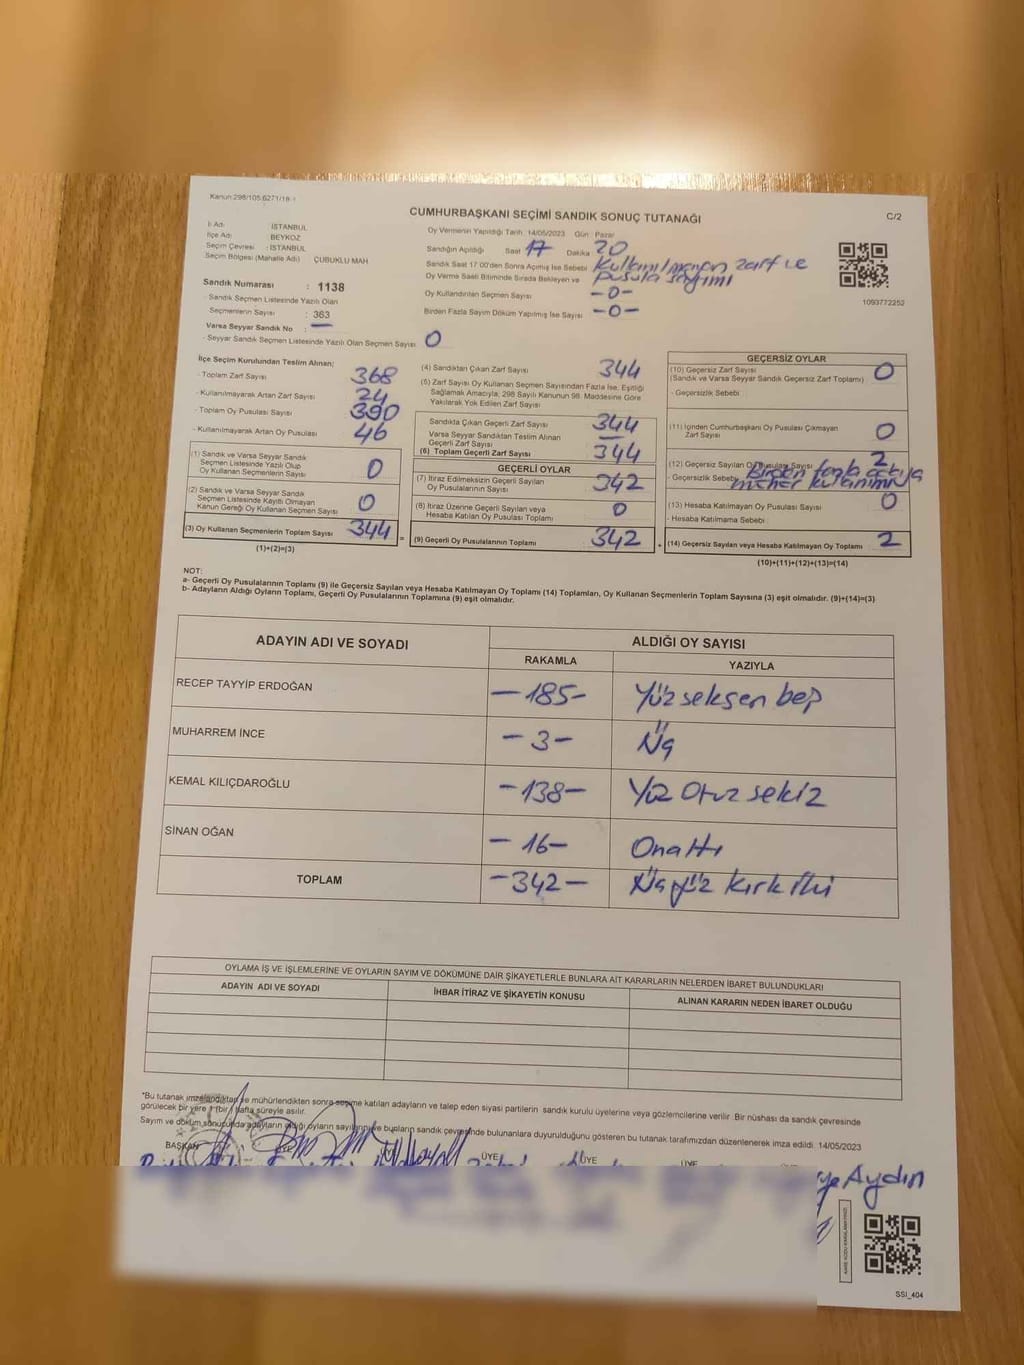 Kanun:298/105,6271/18-1
C/2
CUMHURBAŞKANI SEÇİMİ SANDIK SONUÇ TUTANAĞI
İl Adı : İSTANBUL
İlçe Adı : BEYKOZ
Seçim Çevresi : İSTANBUL
Seçim Bölgesi (Mahalle Adı) ÇUBUKLU MAH
Sandık Numarası : 1138
- Sandık Seçmen Listesinde Yazılı Olan
Seçmenlerin Sayısı : 363
Varsa Seyyar Sandık No : —
- Seyyar Sandık Seçmen Listesinde Yazılı Olan Seçmen Sayısı 0
Oy Vermenin Yapıldığı Tarih: 14/05/2023 Gün : Pazar
Sandığın Açıldığı Saat 17 Dakika 20
Sandık Saat 17.00'den Sonra Açılmış İse Sebebi Kullanılmayan zarf ve
Oy Verme Saati Bitiminde Sırada Bekleyen ve pusula sayımı
Oy Kullandırılan Seçmen Sayısı -0-
Birden Fazla Sayım Döküm Yapılmış İse Sayısı -0-
1093772252
İlçe Seçim Kurulundan Teslim Alınan:
- Toplam Zarf Sayısı 368
- Kullanılmayarak Artan Zarf Sayısı 24
- Toplam Oy Pusulası Sayısı 390
- Kullanılmayarak Artan Oy Pusulası 46
(1) Sandık ve Varsa Seyyar Sandık
Seçmen Listesinde Yazılı Olup
Oy Kullanan Seçmenlerin Sayısı 0
(2) Sandık ve Varsa Seyyar Sandık
Seçmen Listesinde Kayıtlı Olmayan
Kanun Gereği Oy Kullanan Seçmen Sayısı 0
(3) Oy Kullanan Seçmenlerin Toplam Sayısı 344
(1)+(2)=(3)
(4) Sandıktan Çıkan Zarf Sayısı 344
(5) Zarf Sayısı Oy Kullanan Seçmen Sayısından Fazla İse, Eşitliği
Sağlamak Amacıyla, 298 Sayılı Kanunun 98. Maddesine Göre
Yakılarak Yok Edilen Zarf Sayısı
Sandıkta Çıkan Geçerli Zarf Sayısı 344
Varsa Seyyar Sandıktan Teslim Alınan
Geçerli Zarf Sayısı —
(6) Toplam Geçerli Zarf Sayısı 344
GEÇERLİ OYLAR
(7) İtiraz Edilmeksizin Geçerli Sayılan
Oy Pusulalarının Sayısı 342
(8) İtiraz Üzerine Geçerli Sayılan veya
Hesaba Katılan Oy Pusulası Toplamı 0
= (9) Geçerli Oy Pusulalarının Toplamı 342
GEÇERSİZ OYLAR
(10) Geçersiz Zarf Sayısı
(Sandık ve Varsa Seyyar Sandık Geçersiz Zarf Toplamı) 0
- Geçersizlik Sebebi
(11) İçinden Cumhurbaşkanı Oy Pusulası Çıkmayan
Zarf Sayısı 0
(12) Geçersiz Sayılan Oy Pusulası Sayısı 2
- Geçersizlik Sebebi Birden fazla adaya
mühür kullanımı
(13) Hesaba Katılmayan Oy Pusulası Sayısı 0
- Hesaba Katılmama Sebebi
+ (14) Geçersiz Sayılan veya Hesaba Katılmayan Oy Toplamı 2
(10)+(11)+(12)+(13)=(14)
NOT:
a- Geçerli Oy Pusulalarının Toplamı (9) ile Geçersiz Sayılan veya Hesaba Katılmayan Oy Toplamı (14) Toplamları, Oy Kullanan Seçmenlerin Toplam Sayısına (3) eşit olmalıdır. (9)+(14)=(3)
b- Adayların Aldığı Oyların Toplamı, Geçerli Oy Pusulalarının Toplamına (9) eşit olmalıdır.
ADAYIN ADI VE SOYADI
ALDIĞI OY SAYISI
RAKAMLA YAZIYLA
RECEP TAYYİP ERDOĞAN -185- Yüzseksen beş
MUHARREM İNCE -3- Üç
KEMAL KILIÇDAROĞLU -138- Yüz Otuz sekiz
SİNAN OĞAN -16- Onaltı
TOPLAM -342- Üçyüz kırk iki
OYLAMA İŞ VE İŞLEMLERİNE VE OYLARIN SAYIM VE DÖKÜMÜNE DAİR ŞİKAYETLERLE BUNLARA AİT KARARLARIN NELERDEN İBARET BULUNDUKLARI
ADAYIN ADI VE SOYADI
İHBAR İTİRAZ VE ŞİKAYETİN KONUSU
ALINAN KARARIN NEDEN İBARET OLDUĞU
*Bu tutanak imzalandıktan ve mühürlendikten sonra seçime katılan adayların ve talep eden siyasi partilerin sandık kurulu üyelerine veya gözlemcilerine verilir. Bir nüshası da sandık çevresinde
görülecek bir yere 1 (bir) hafta süreyle asılır.
Sayım ve döküm sonucunda adayların aldığı oyların sayılarını ve bunların sandık çevresinde bulunanlara duyurulduğunu gösteren bu tutanak tarafımızdan düzenlenerek imza edildi. 14/05/2023
BAŞKAN ÜYE ÜYE ÜYE ÜYE ÜYE
Aydın
SSİ_404